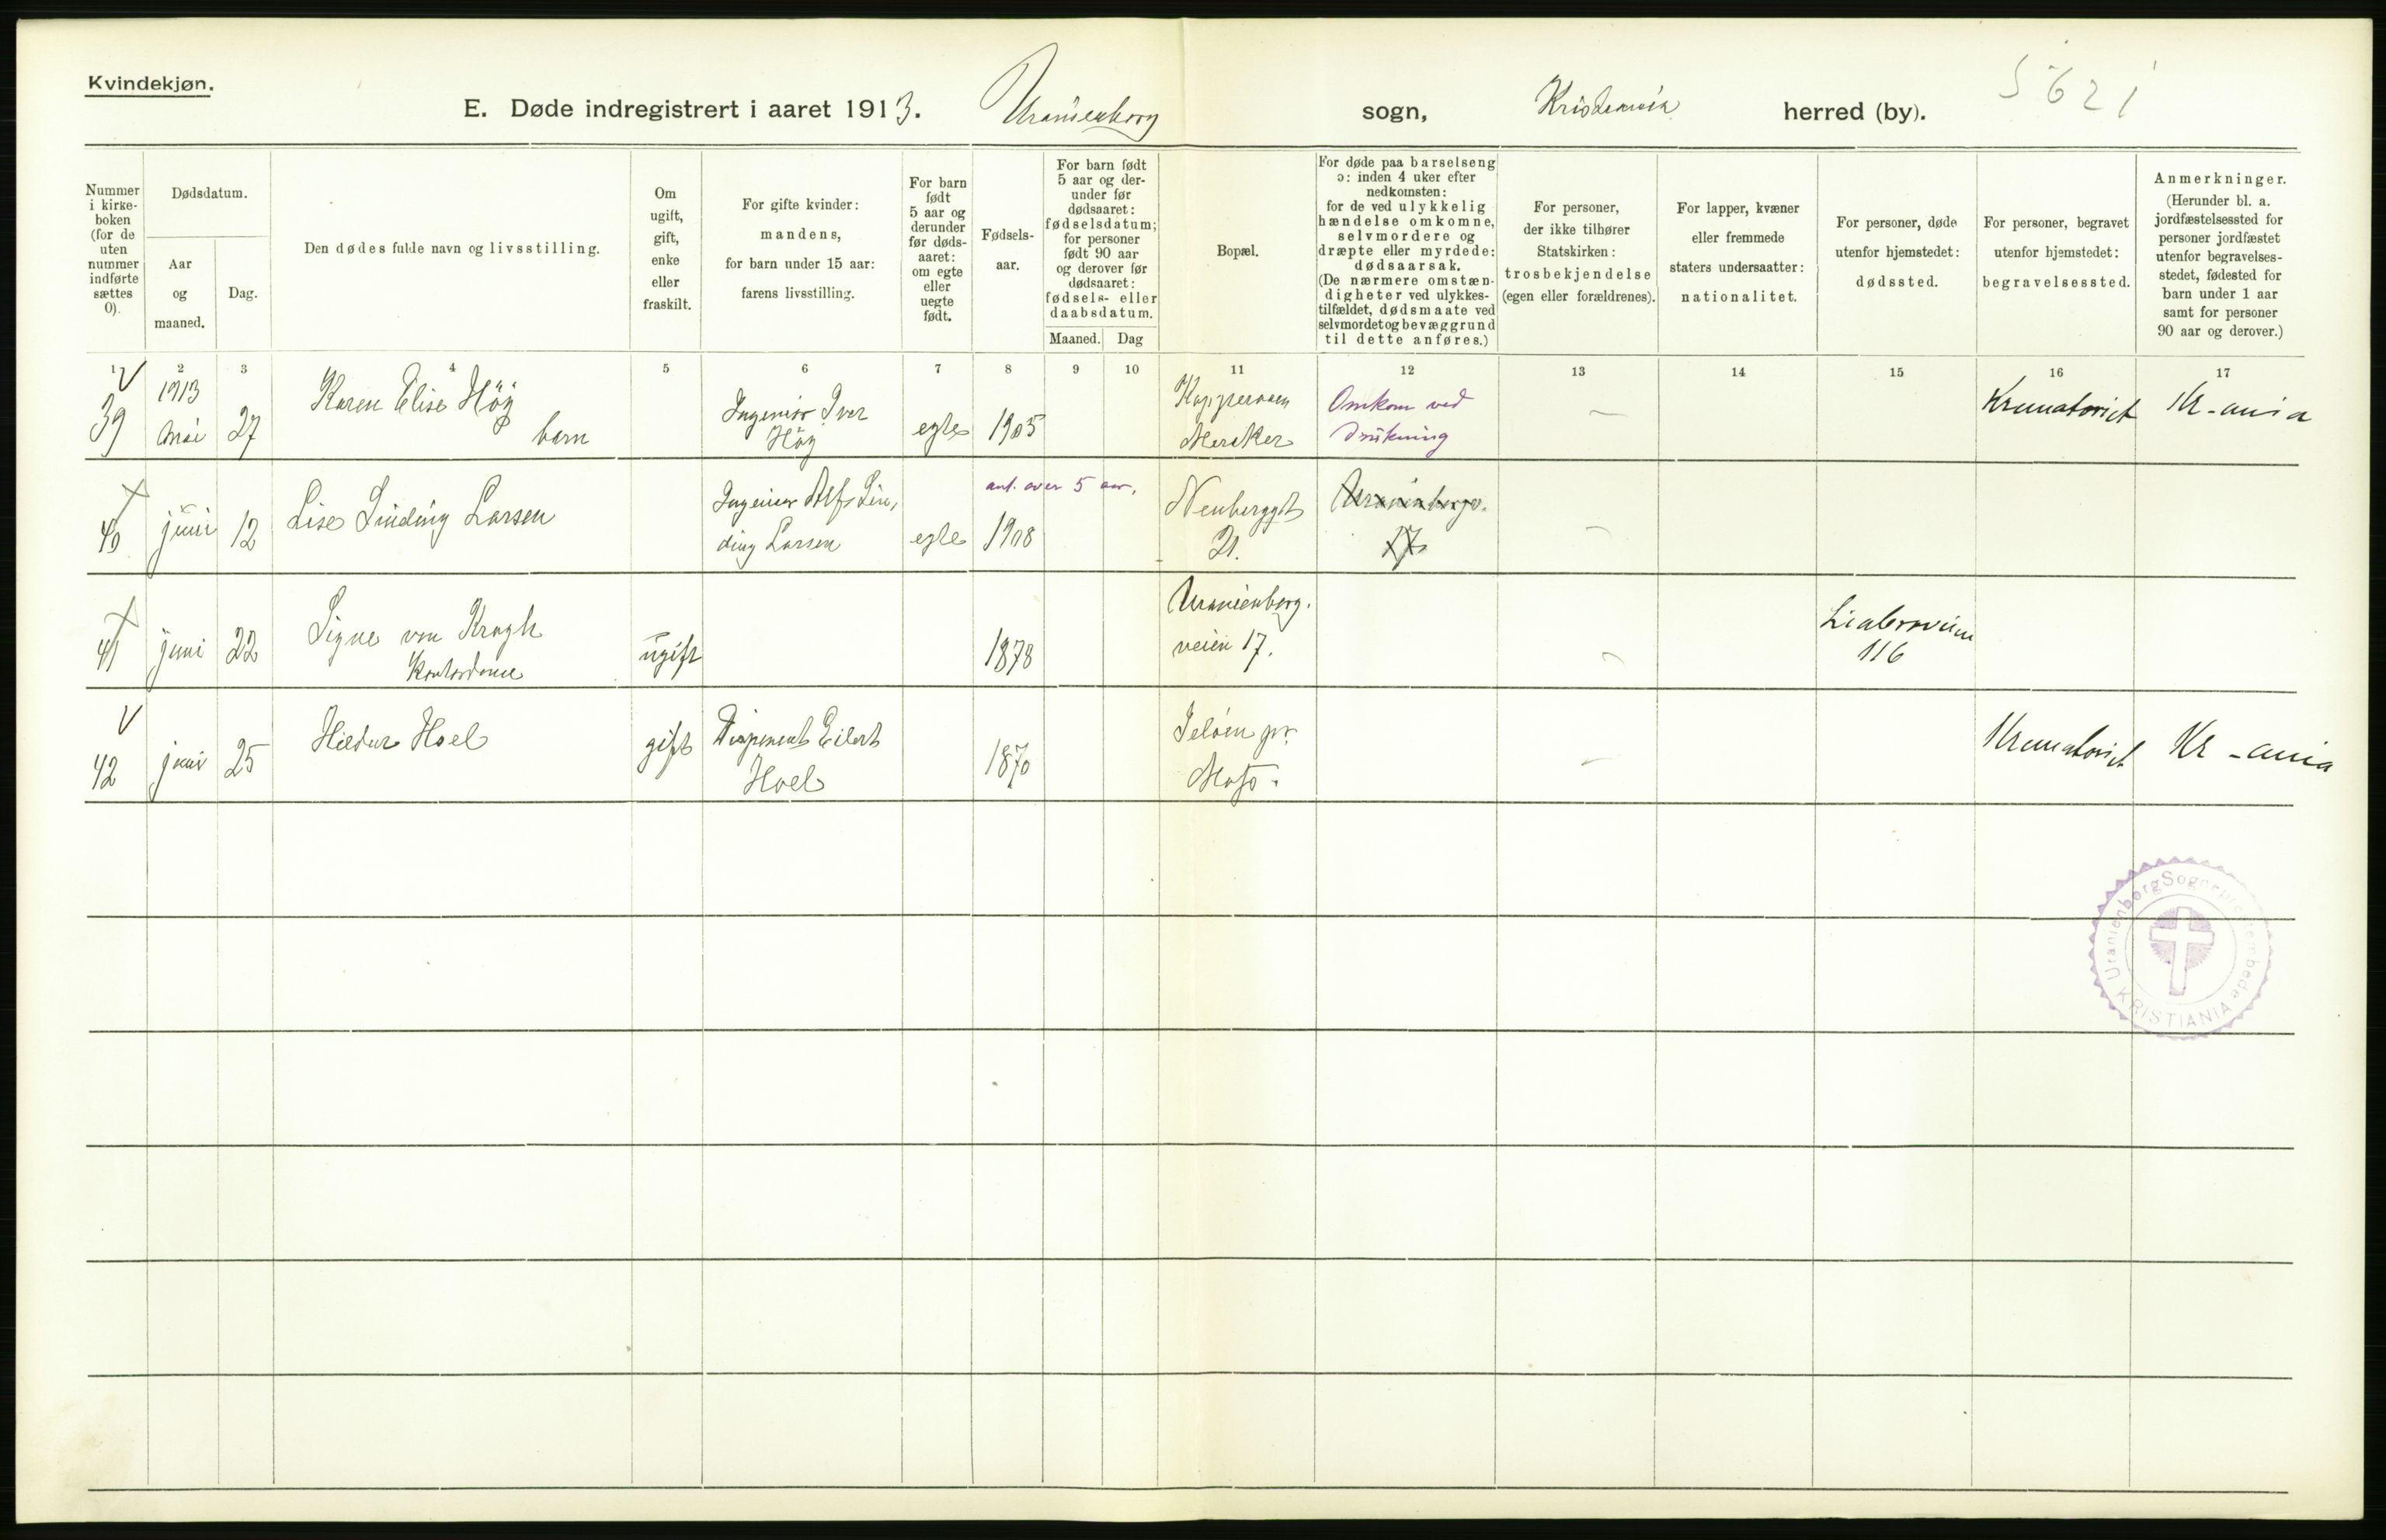 Kvindekjøn.
E. Døde indregistrert i aaret 1913. Uranienborg sogn, Kristiania herred (by).
5621
Nummer
i kirke-
boken
(for de
uten
nummer
indførte
sættes
0).
Dødsdatum.
Aar
og
maaned.
Dag.
Den dødes fulde navn og livsstilling.
Om
ugift,
gift,
enke
eller
fraskilt.
For gifte kvinder:
mandens,
for barn under 15 aar:
farens livsstilling.
For barn
født
5 aar og
derunder
før døds-
aaret:
om egte
eller
uegte
født.
Fødsels-
aar.
For barn født
5 aar og der-
under før
dødsaaret:
fødselsdatum;
for personer
født 90 aar
og derover før
dødsaaret:
fødsels- eller
daabsdatum.
Maaned. Dag
Bopæl.
For døde paa barselseng
ɔ: inden 4 uker efter
nedkomsten:
for de ved ulykkelig
hændelse omkomne,
selvmordere og
dræpte eller myrdede:
dødsaarsak.
(De nærmere omstæn-
digheter ved ulykkes-
tilfældet, dødsmaate ved
selvmordet og bevæggrund
til dette anføres.)
For personer,
der ikke tilhører
Statskirken:
trosbekjendelse
(egen eller forældrenes).
For lapper, kvæner
eller fremmede
staters undersaatter:
nationalitet.
For personer, døde
utenfor hjemstedet:
dødssted.
For personer, begravet
utenfor hjemstedet:
begravelsessted.
Anmerkninger.
(Herunder bl. a.
jordfæstelsessted for
personer jordfæstet
utenfor begravelses-
stedet, fødested for
barn under 1 aar
samt for personer
90 aar og derover.)
1 2 3 4 5 6 7 8 9 10 11 12 13 14 15 16 17
39
1913
mai
27
Karen Elise Höy
barn
Ingeniör Iver
Höy
egte
1905
Meraker
Omkom ved
drukning
Krematoriet
Kr-ania
40
juni
12
Lise Linding Larsen
Ingeniör Alf Lin,
ding Larsen
egte
ant. over 5 aar.
1908
Neuberggt
21.
Uranienborgv.
17
41
juni
22
Signe von Krogh
Kontordame
ugift
1878
Uranienborg.
veien 17.
Liabroveien
116
42
juni
25
Hildur Hoel
gift
Disponent Eilert
Hoel
1870
Jelöen pr.
Moss.
Krematoriet
Kr-ania
Uranienborg Sogneprestembede
KRISTIANIA